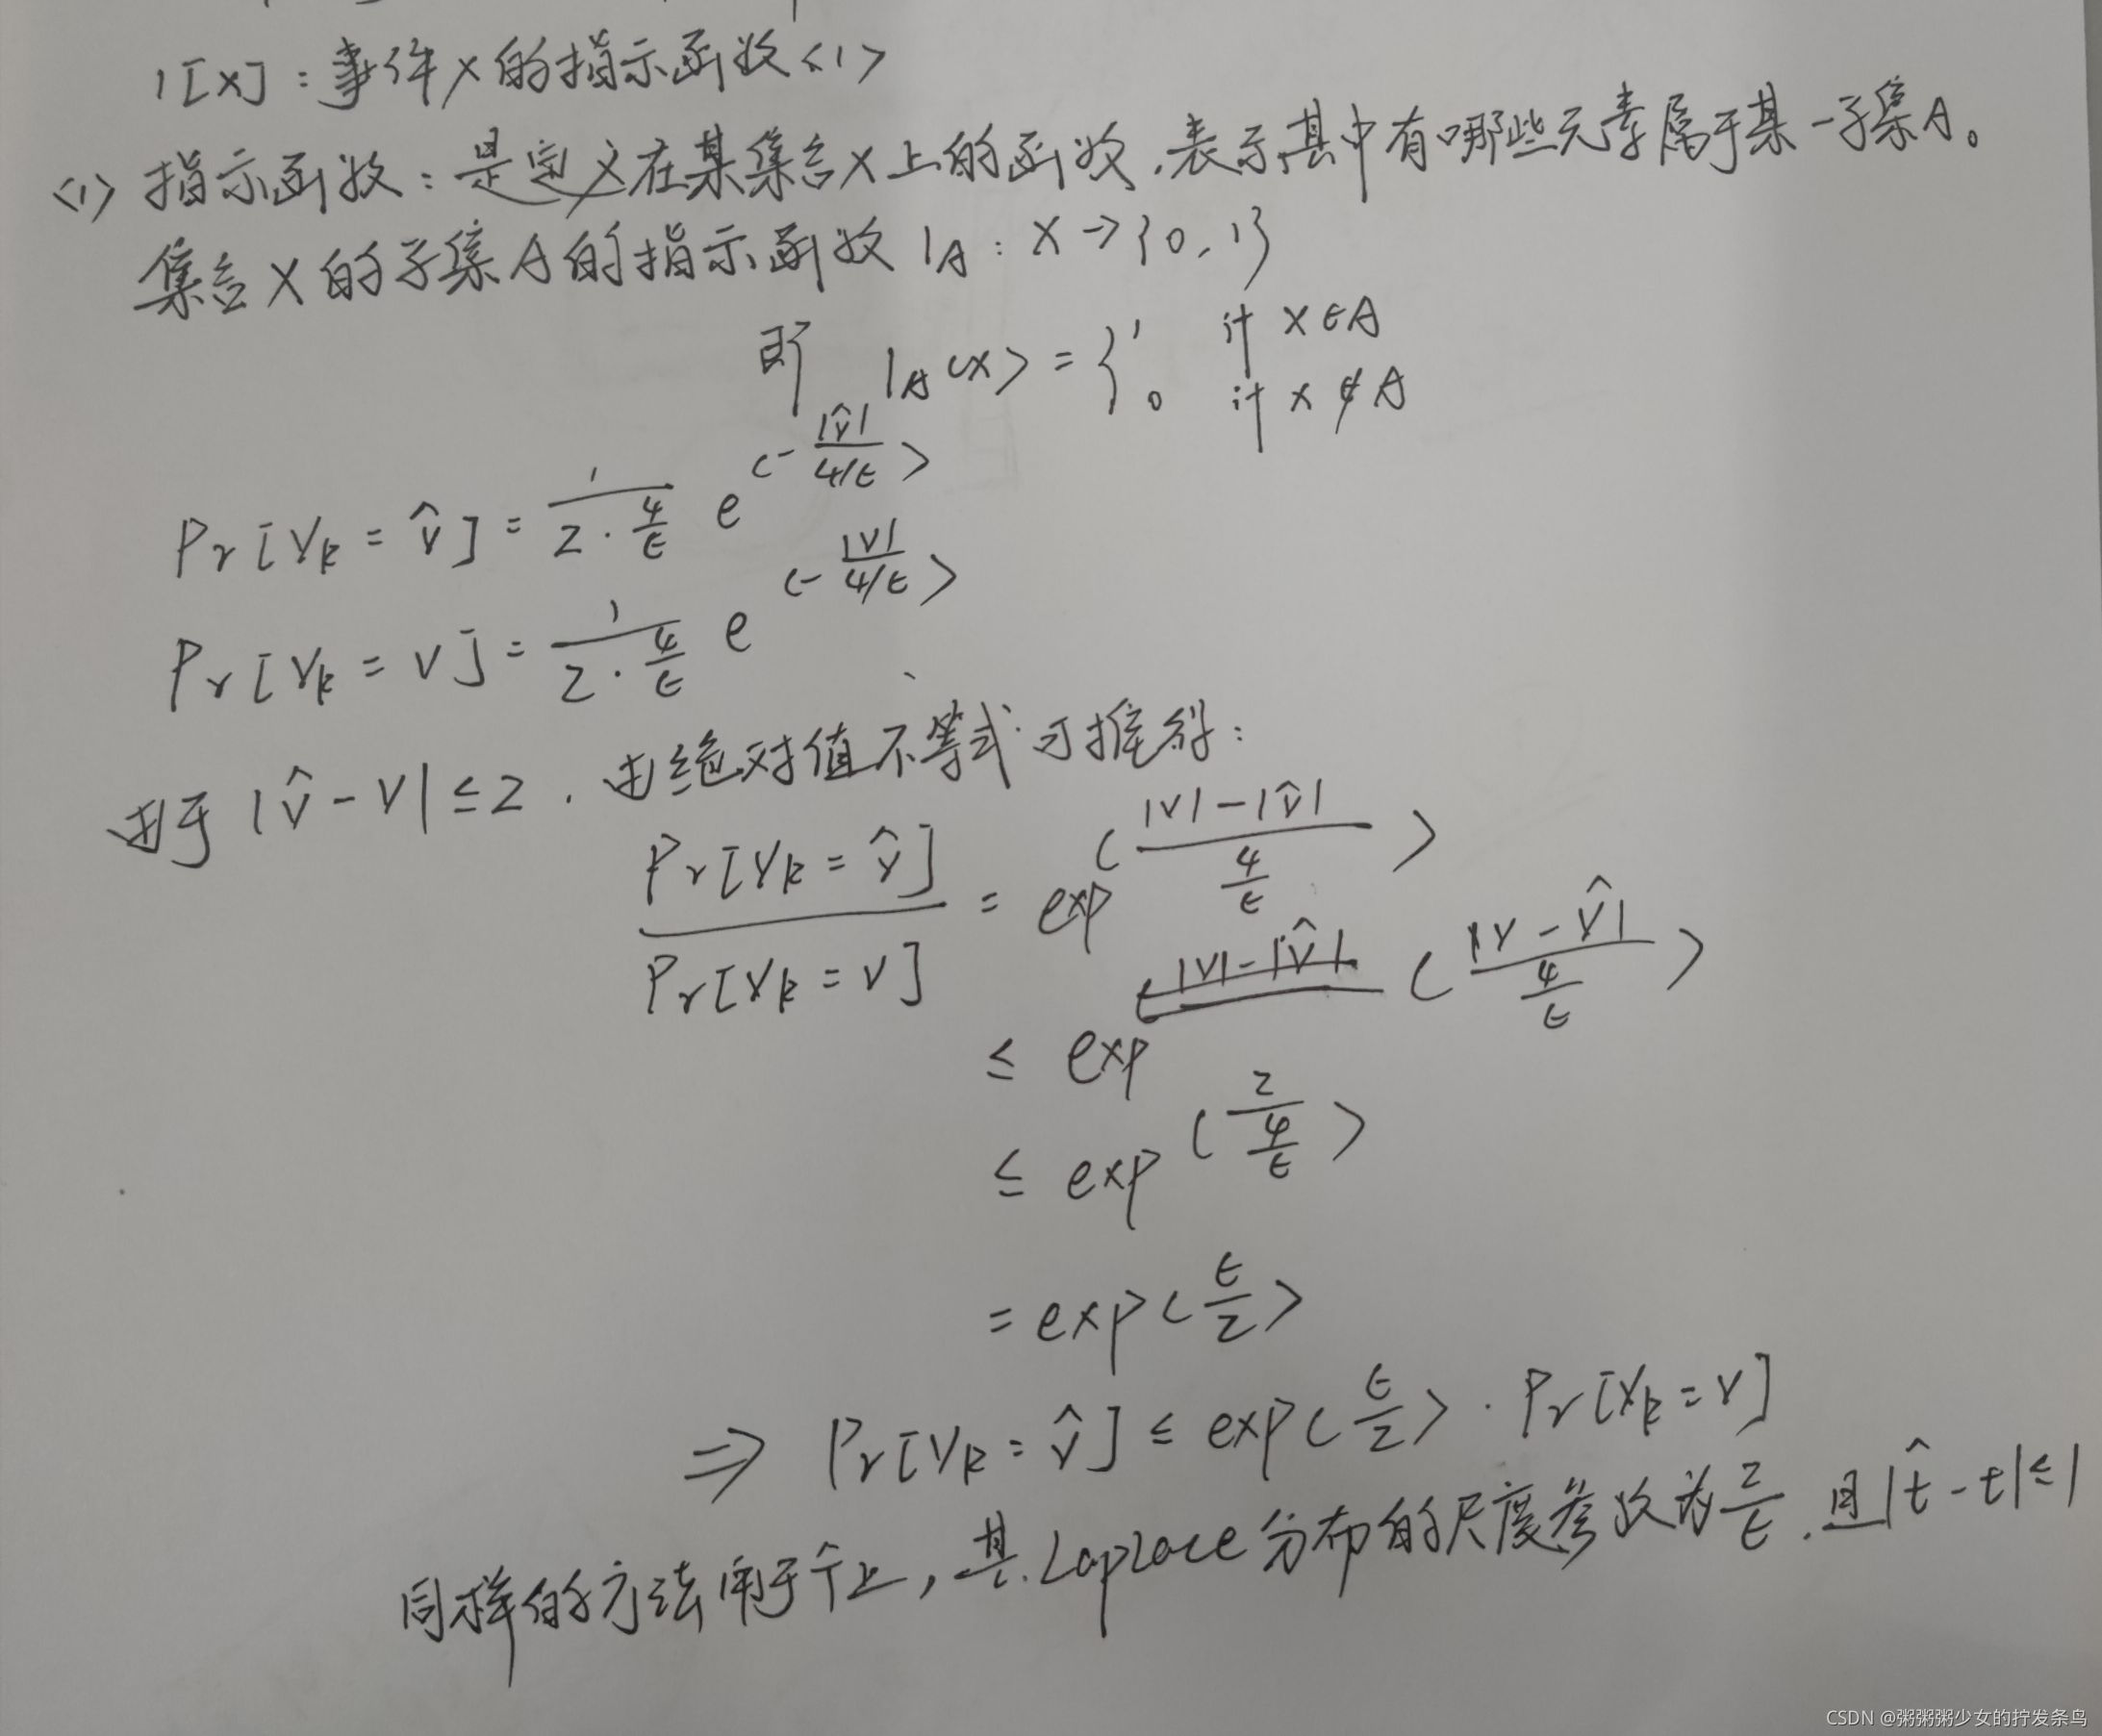 1[X]：事件X的指示函数<1>
<1> 指示函数：是定义在某集合X上的函数，表示其中有哪些元素属于某一子集A。
集合X的子集A的指示函数 1_A：X→{0,1}
即 1_A(x) = { 1 计 x∈A
0 计 x∉A
Pr[Vk = v̂] = 1/(2·4/ε) e^(-|v̂|/(4/ε))
Pr[Vk = v] = 1/(2·4/ε) e^(-|v|/(4/ε))
由于 |v̂-v| ≤ 2，由绝对值不等式可推得：
Pr[Vk = v̂] / Pr[Vk = v] = exp((|v|-|v̂|)/(4/ε))
≤ exp(|v-v̂|/(4/ε))
≤ exp(2/(4/ε))
= exp(ε/2)
⇒ Pr[Vk = v̂] ≤ exp(ε/2) · Pr[Vk = v]
同样的方法用于 上，其Laplace分布的尺度参数为 2/ε，且|t̂-t|≤1
CSDN @粥粥粥少女的拧发条鸟